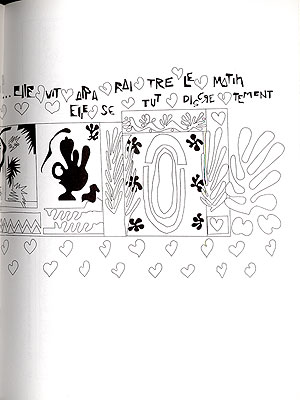 ... EllE VIT APA RAI TRE LE MATIN
EllE SE TUT DISCRE TEMENT